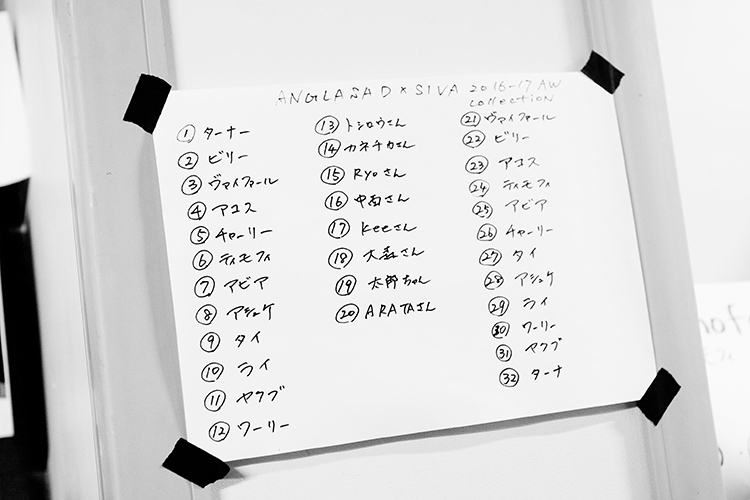 ANGLASAD × SIVA 2016-17 AW
collection
① ターナー
② ビリー
③ ヴァイファール
④ アコス
⑤ チャーリー
⑥ ティモフィ
⑦ アビア
⑧ アシュケ
⑨ タイ
⑩ ライ
⑪ ヤクブ
⑫ ワーリー
⑬ トシロウさん
⑭ カネチカさん
⑮ Ryoさん
⑯ 中西さん
⑰ Keeさん
⑱ 大森さん
⑲ 太郎ちゃん
⑳ ARATAさん
㉑ ヴァイファール
㉒ ビリー
㉓ アコス
㉔ ティモフィ
㉕ アビア
㉖ チャーリー
㉗ タイ
㉘ アシュケ
㉙ ライ
㉚ ワーリー
㉛ ヤクブ
㉜ ターナ